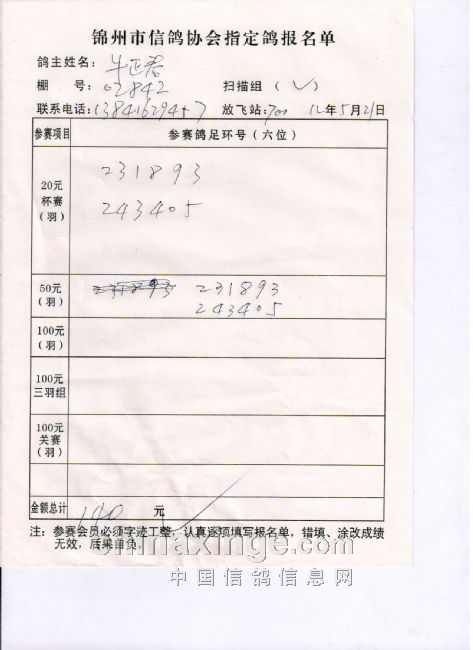 锦州市信鸽协会指定鸽报名单
鸽主姓名：牛正君
棚 号：02842 扫描组（✓）
联系电话：13841629457 放飞站：700 12年5月21日
参赛项目 参赛鸽足环号（六位）
20元
杯赛
（羽）
231893
243405
50元
（羽）
231893 231893
243405
100元
（羽）
100元
三羽组
100元
关赛
（羽）
金额总计 140 元
注：参赛会员必须字迹工整，认真逐项填写报名单，错填、涂改成绩
无效，后果自负
chinaxinge.com
中国信鸽信息网